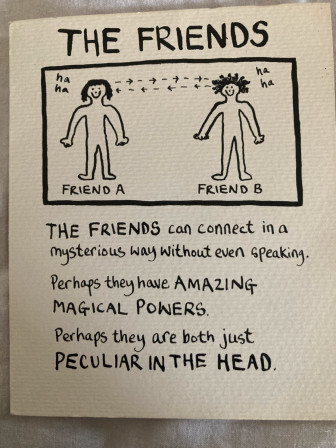 THE FRIENDS
ha ha
ha ha
ha ha
FRIEND A FRIEND B
THE FRIENDS can connect in a
mysterious way without even speaking.
Perhaps they have AMAZING
MAGICAL POWERS.
Perhaps they are both just
PECULIAR IN THE HEAD.